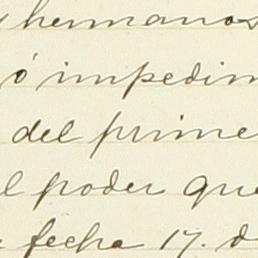 y hermanos
ó impedim
del prime
l poder que
fecha 17. d